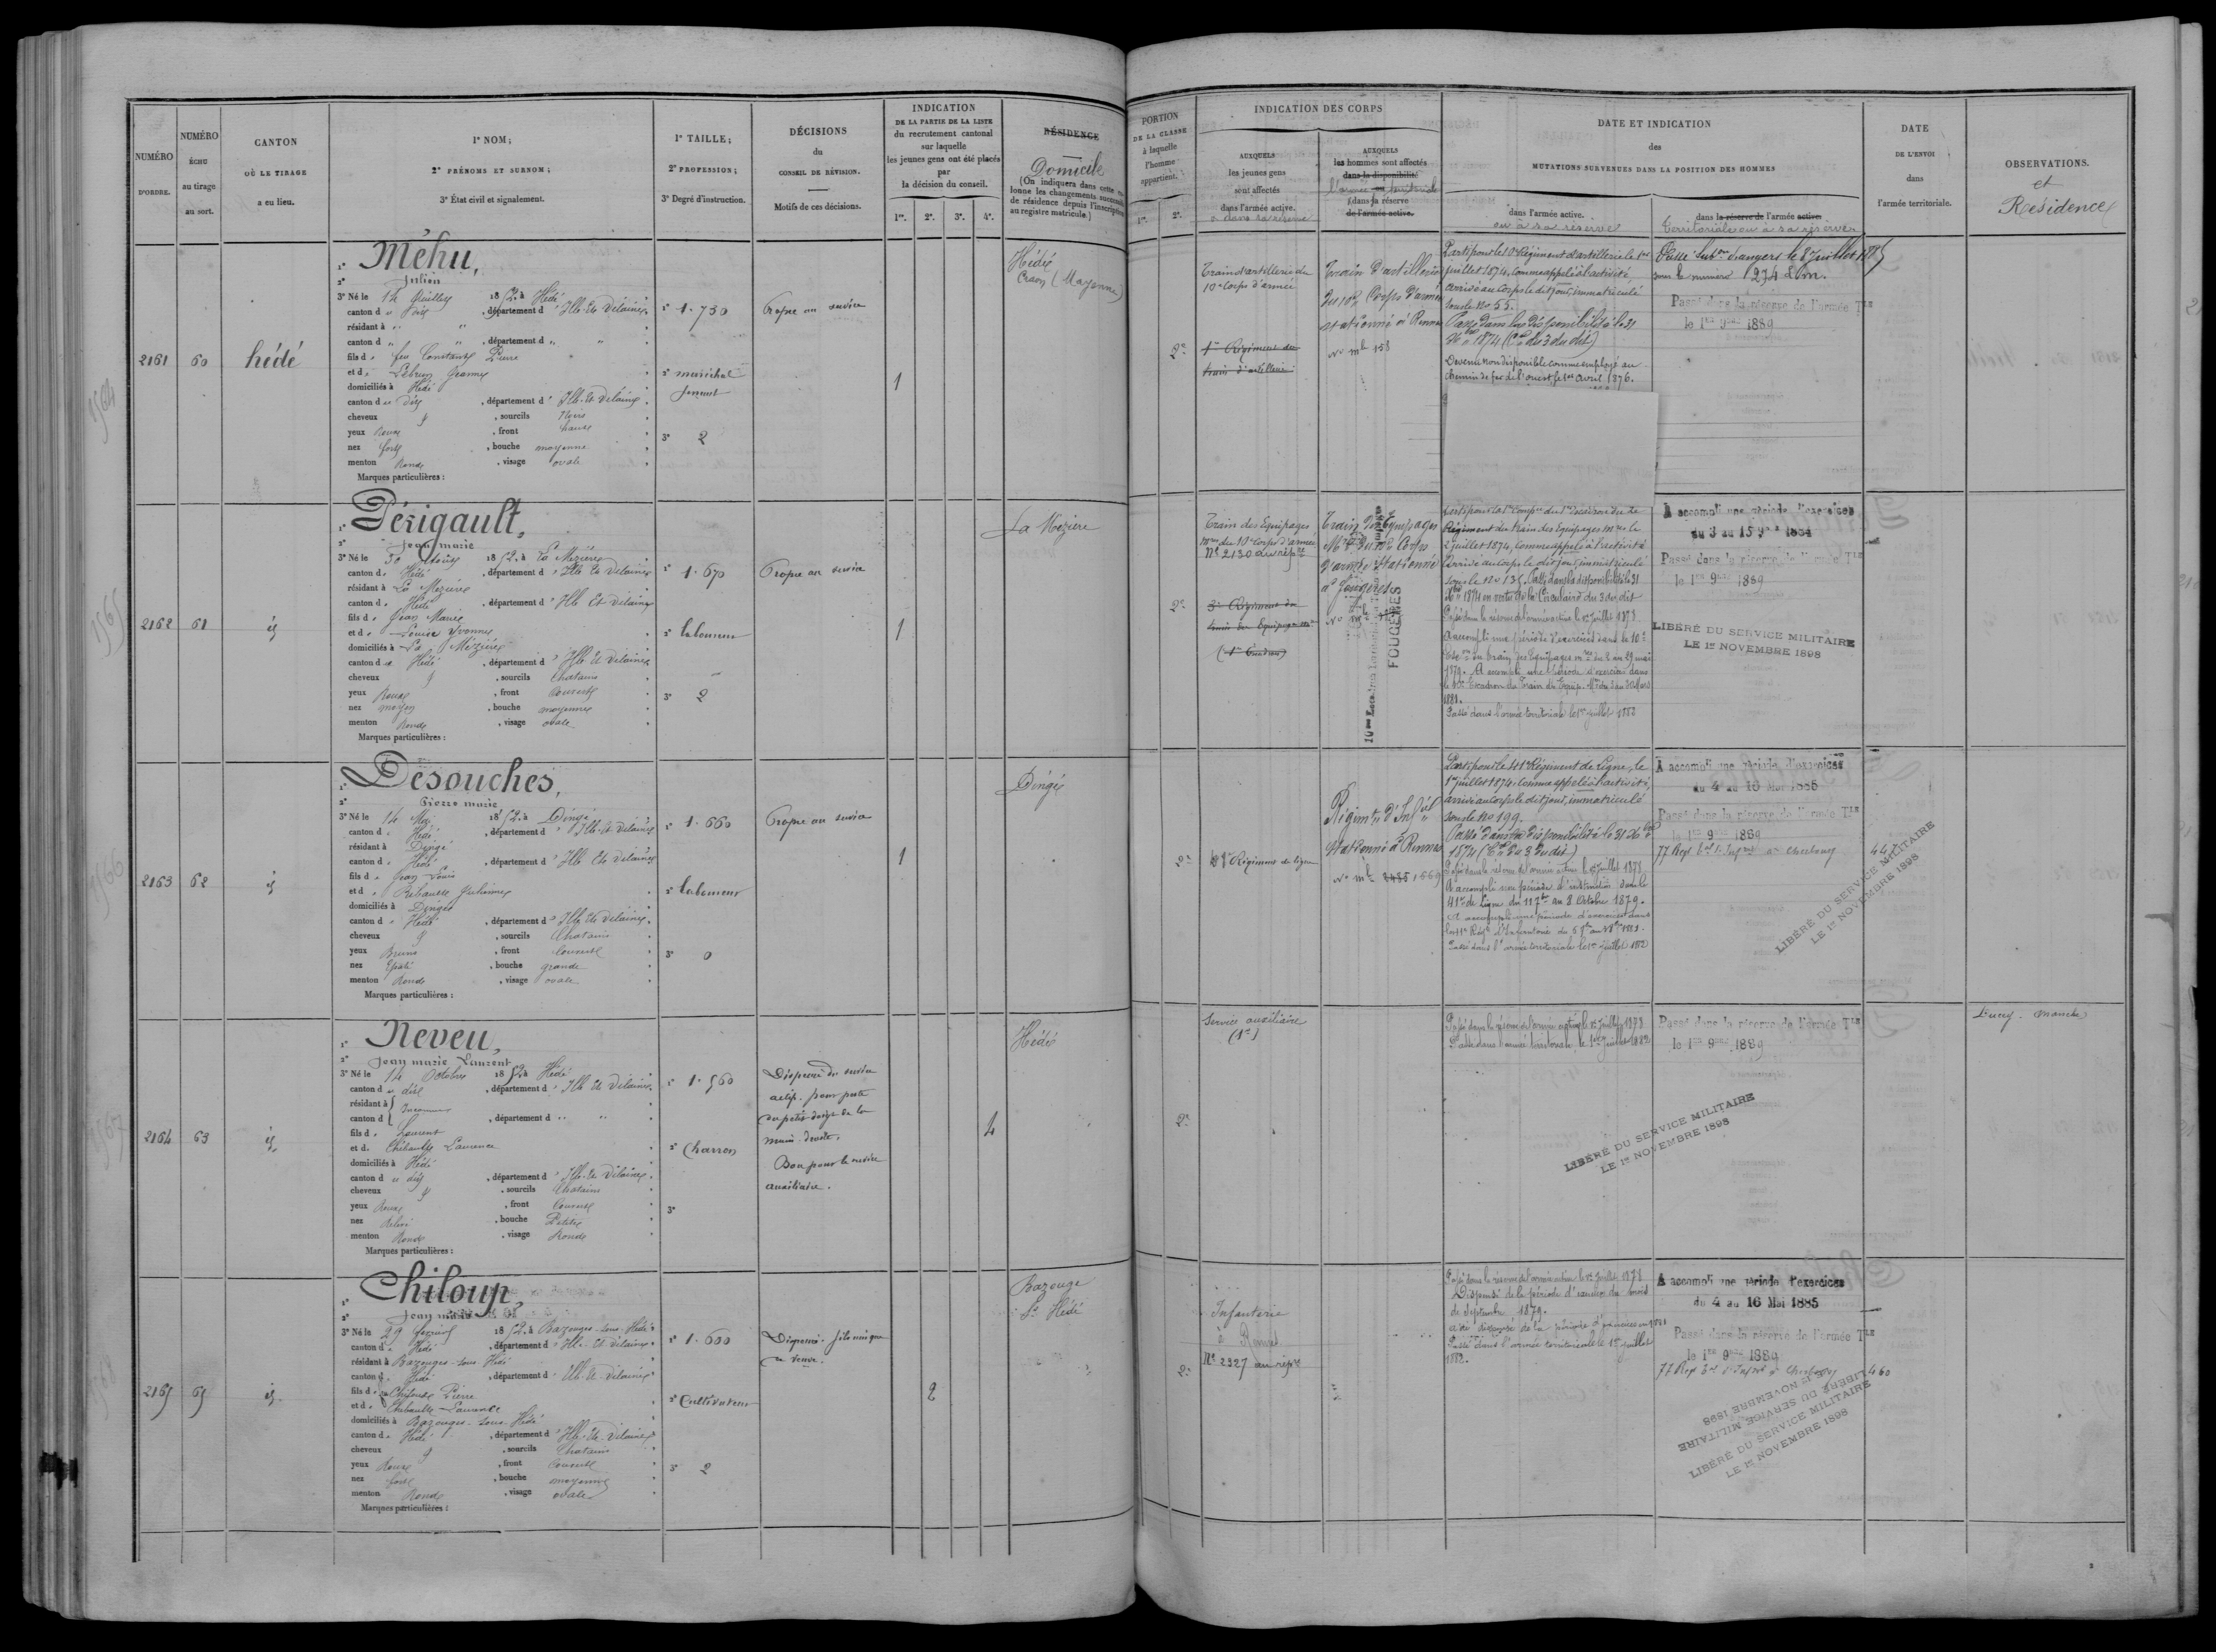 NUMÉRO
D'ORDRE.
NUMÉRO
ÉCHU
au tirage
au sort.
CANTON
OÙ LE TIRAGE
a eu lieu.
1º NOM;
2º PRÉNOMS ET SURNOM;
3º État civil et signalement.
1º TAILLE;
2º PROFESSION;
3º Degré d'instruction.
DÉCISIONS
du
CONSEIL DE RÉVISION.
Motifs de ces décisions.
INDICATION
DE LA PARTIE DE LA LISTE
du recrutement cantonal
sur laquelle
les jeunes gens ont été placés
par
la décision du conseil.
1re. 2e. 3e. 4e.
RÉSIDENCE
Domicile
(On indiquera dans cette
lonne les changements
de résidence depuis l'inscription
au registre matricule.)
PORTION
DE LA CLASSE
à laquelle
l'homme
appartient.
1re. 2e.
INDICATION DES CORPS
AUXQUELS
les jeunes gens
sont affectés
dans l'armée active.
AUXQUELS
les hommes sont affectés
dans la disponibilité
dans la réserve
de l'armée active.
DATE ET INDICATION
des
MUTATIONS SURVENUES DANS LA POSITION DES HOMMES
dans l'armée active.
ou à sa réserve
dans la réserve de l'armée active.
territoriale ou à sa réserve
DATE
DE L'ENVOI
dans
l'armée territoriale.
OBSERVATIONS.
et
Résidence
2161 60 hédé
1º Méhu,
2º Julien
3º Né le 14 Juillet 1852 à Hédé
canton d dit, département d'Ille-Et-Vilaine
résidant à "
canton d " , département d "
fils d feu Constant Pierre
et d Lebrun Jeanne
domiciliés à Hédé
canton d dit, département d'Ille-Et-Vilaine
cheveux & , sourcils Noirs
yeux Roux , front haut
nez fort , bouche moyenne
menton Rond , visage ovale
Marques particulières :
1º 1.730
2º maréchal
ferrant
3º 2
Propre au service
1
Hédé
Craon (Mayenne)
2e
Train d'artillerie du
10e Corps d'armée
1er Régiment du
train d'artillerie
Train d'artillerie
du 10e Corps d'armée
stationné à Rennes
No mle 158
Parti pour le 10e Régiment d'artillerie le 1er
juillet 1874, comme appelé à l'activité
arrivé au corps le dit jour, immatriculé
sous le No 55.
Passé dans la disponibilité le 31
Xbre 1874 (Cre du 3 du dit)
Devenu non disponible comme employé au
chemin de fer de l'ouest le 1er avril 1876.
Passé Subon d'angers le 8 juillet 1885
sous le numéro 1274 L.m.
Passé dans la réserve de l'armée Tle
le 1er 9bre 1889
2162 61 id
1º Périgault,
2º Jean marie
3º Né le 30 1852 à La Mezière
canton d Hédé, département d'Ille Et Vilaine
résidant à La Mezière
canton d Hédé, département d'Ille Et Vilaine
fils d Jean Marie
et d Louise Yvonne
domiciliés à La Mézière
canton d Hédé, département d'Ille Et Vilaine
cheveux & , sourcils Chatains
yeux Roux , front Couvert
nez moyen , bouche moyenne
menton Rond , visage ovale
Marques particulières :
1º 1.670
2º laboureur
3º 2
Propre au service
1
La Mezière
2e
Train des Equipages
mres du 10e Corps d'armée
No 2130 au rép.
3e Régiment du
train des Equipages mres
Train des Equipages
Mres du 10e Corps
d'armée Stationné
à Fougères
FOUGÈRES
Parti pour la 1e Compie du 1er Escadron du 3e
Régiment du train des Equipages mres le
2 juillet 1874, comme appelé à l'activité
arrivé au corps le dit jour, immatriculé
sous le No 135. Passé dans la disponibilité le 31
Xbre 1874 en vertu de la Circulaire du 3 du dit
Passé dans la réserve de l'armée active le 1er juillet 1878
A accompli une période d'exercices dans le 10e
Esc. du train des Equipages mres du 2 au 29 mai
1879. A accompli une période d'exercices dans
le 10e Escadron du Train des Equip. Mres
1881.
Passé dans l'armée territoriale le 1er juillet 1882
A accompli une période d'exercices
du 3 au 15 9bre 1884
Passé dans la réserve de l'armée Tle
le 1er 9bre 1889
LIBÉRÉ DU SERVICE MILITAIRE
LE 1er NOVEMBRE 1898
2163 62 id
1º Désouches,
2º Pierre marie
3º Né le 14 Mai 1852 à Dingé
canton d Hédé, département d'Ille-Et-Vilaine
résidant à Dingé
canton d Hédé, département d'Ille Et Vilaine
fils d Jean Louis
et d Julienne
domiciliés à Dingé
canton d Hédé, département d'Ille Et Vilaine
cheveux & , sourcils Chatains
yeux Bruns , front Couvert
nez Epaté , bouche grande
menton Rond , visage ovale
Marques particulières :
1º 1.660
2º laboureur
3º 0
Propre au service
1
Dingé
2e
41e Régiment de ligne
Régimt d'Infie
Stationné à Rennes
No mle 2485 1669
Parti pour le 41e Régiment de Ligne, le
1er juillet 1874, comme appelé à l'activité,
arrivé au corps le dit jour, immatriculé
sous le No 199.
Passé dans la disponibilité le 31 Xbre
1874 (Cre du 3 du dit)
Passé dans la réserve de l'armée active le 1er juillet 1878
A accompli une période d'instruction dans le
41e de Ligne du 11 7bre au 8 Octobre 1879.
A accompli une période d'exercices dans
le 41e Régt d'Infanterie
Passé dans l'armée territoriale le 1er juillet 1882
A accompli une période d'exercices
du 4 au 16 Mai 1885
Passé dans la réserve de l'armée Tle
le 1er 9bre 1889
77 Regt tal d'Infie à Cherbourg
447
LIBÉRÉ DU SERVICE MILITAIRE
LE 1er NOVEMBRE 1898
2164 63 id
1º Neveu,
2º Jean marie Laurent
3º Né le 14 Octobre 1852 à Hédé
canton d dit, département d'Ille Et Vilaine
résidant à Inconnu
canton d , département d "
fils d Laurent
et d. Thébault Laurence
domiciliés à Hédé
canton d dit, département d'Ille-Et-Vilaine
cheveux & , sourcils Chatains
yeux Roux , front Couvert
nez , bouche Petite
menton Rond , visage Rond
Marques particulières :
1º 1.560
2º Charron
3º
Dispensé du service
actif. pour perte
du petit doigt de la
main droite.
Bon pour le service
auxiliaire.
4
Hédé
2e
Service auxiliaire
Passé dans la réserve de l'armée active le 1er juillet 1878
Passé dans l'armée territoriale le 1er juillet 1882
Passé dans la réserve de l'armée Tle
le 1er 9bre 1889
LIBÉRÉ DU SERVICE MILITAIRE
LE 1er NOVEMBRE 1898
Manche
2165 65 id.
1º Chiloup,
2º Jean marie
3º Né le 29 1852 à Bazouges-sous-Hédé
canton d Hédé, département d'Ille-Et-Vilaine
résidant à Bazouges-sous-Hédé
canton d Hédé, département d'Ille-Et-Vilaine
fils d feu Chiloup Pierre
et d Thébault Laurence
domiciliés à Bazouges-sous-Hédé
canton d Hédé, département d'Ille-Et-Vilaine
cheveux & , sourcils Chatains
yeux Roux , front Couvert
nez fort , bouche moyenne
menton Rond , visage ovale
Marques particulières :
1º 1.600
2º Cultivateur
3º 2
Dispensé. fils unique
de veuve.
2
Bazouge
Ss Hédé
2e
Infanterie
No 2327 au rép.
Passé dans la réserve de l'armée active le 1er juillet 1878
Dispensé de la période d'exercices du mois
de Septembre 1879.
a été dispensé de la période d'exercices en 1881
Passé dans l'armée territoriale le 1er juillet
1882.
A accompli une période d'exercices
du 4 au 16 Mai 1885
Passé dans la réserve de l'armée Tle
le 1er 9bre 1889
77 Regt tal d'Infie à Cherbourg
460
LIBÉRÉ DU SERVICE MILITAIRE
LE 1er NOVEMBRE 1898
LIBÉRÉ DU SERVICE MILITAIRE
LE 1er NOVEMBRE 1898
1564
1565
1566
1567
1568